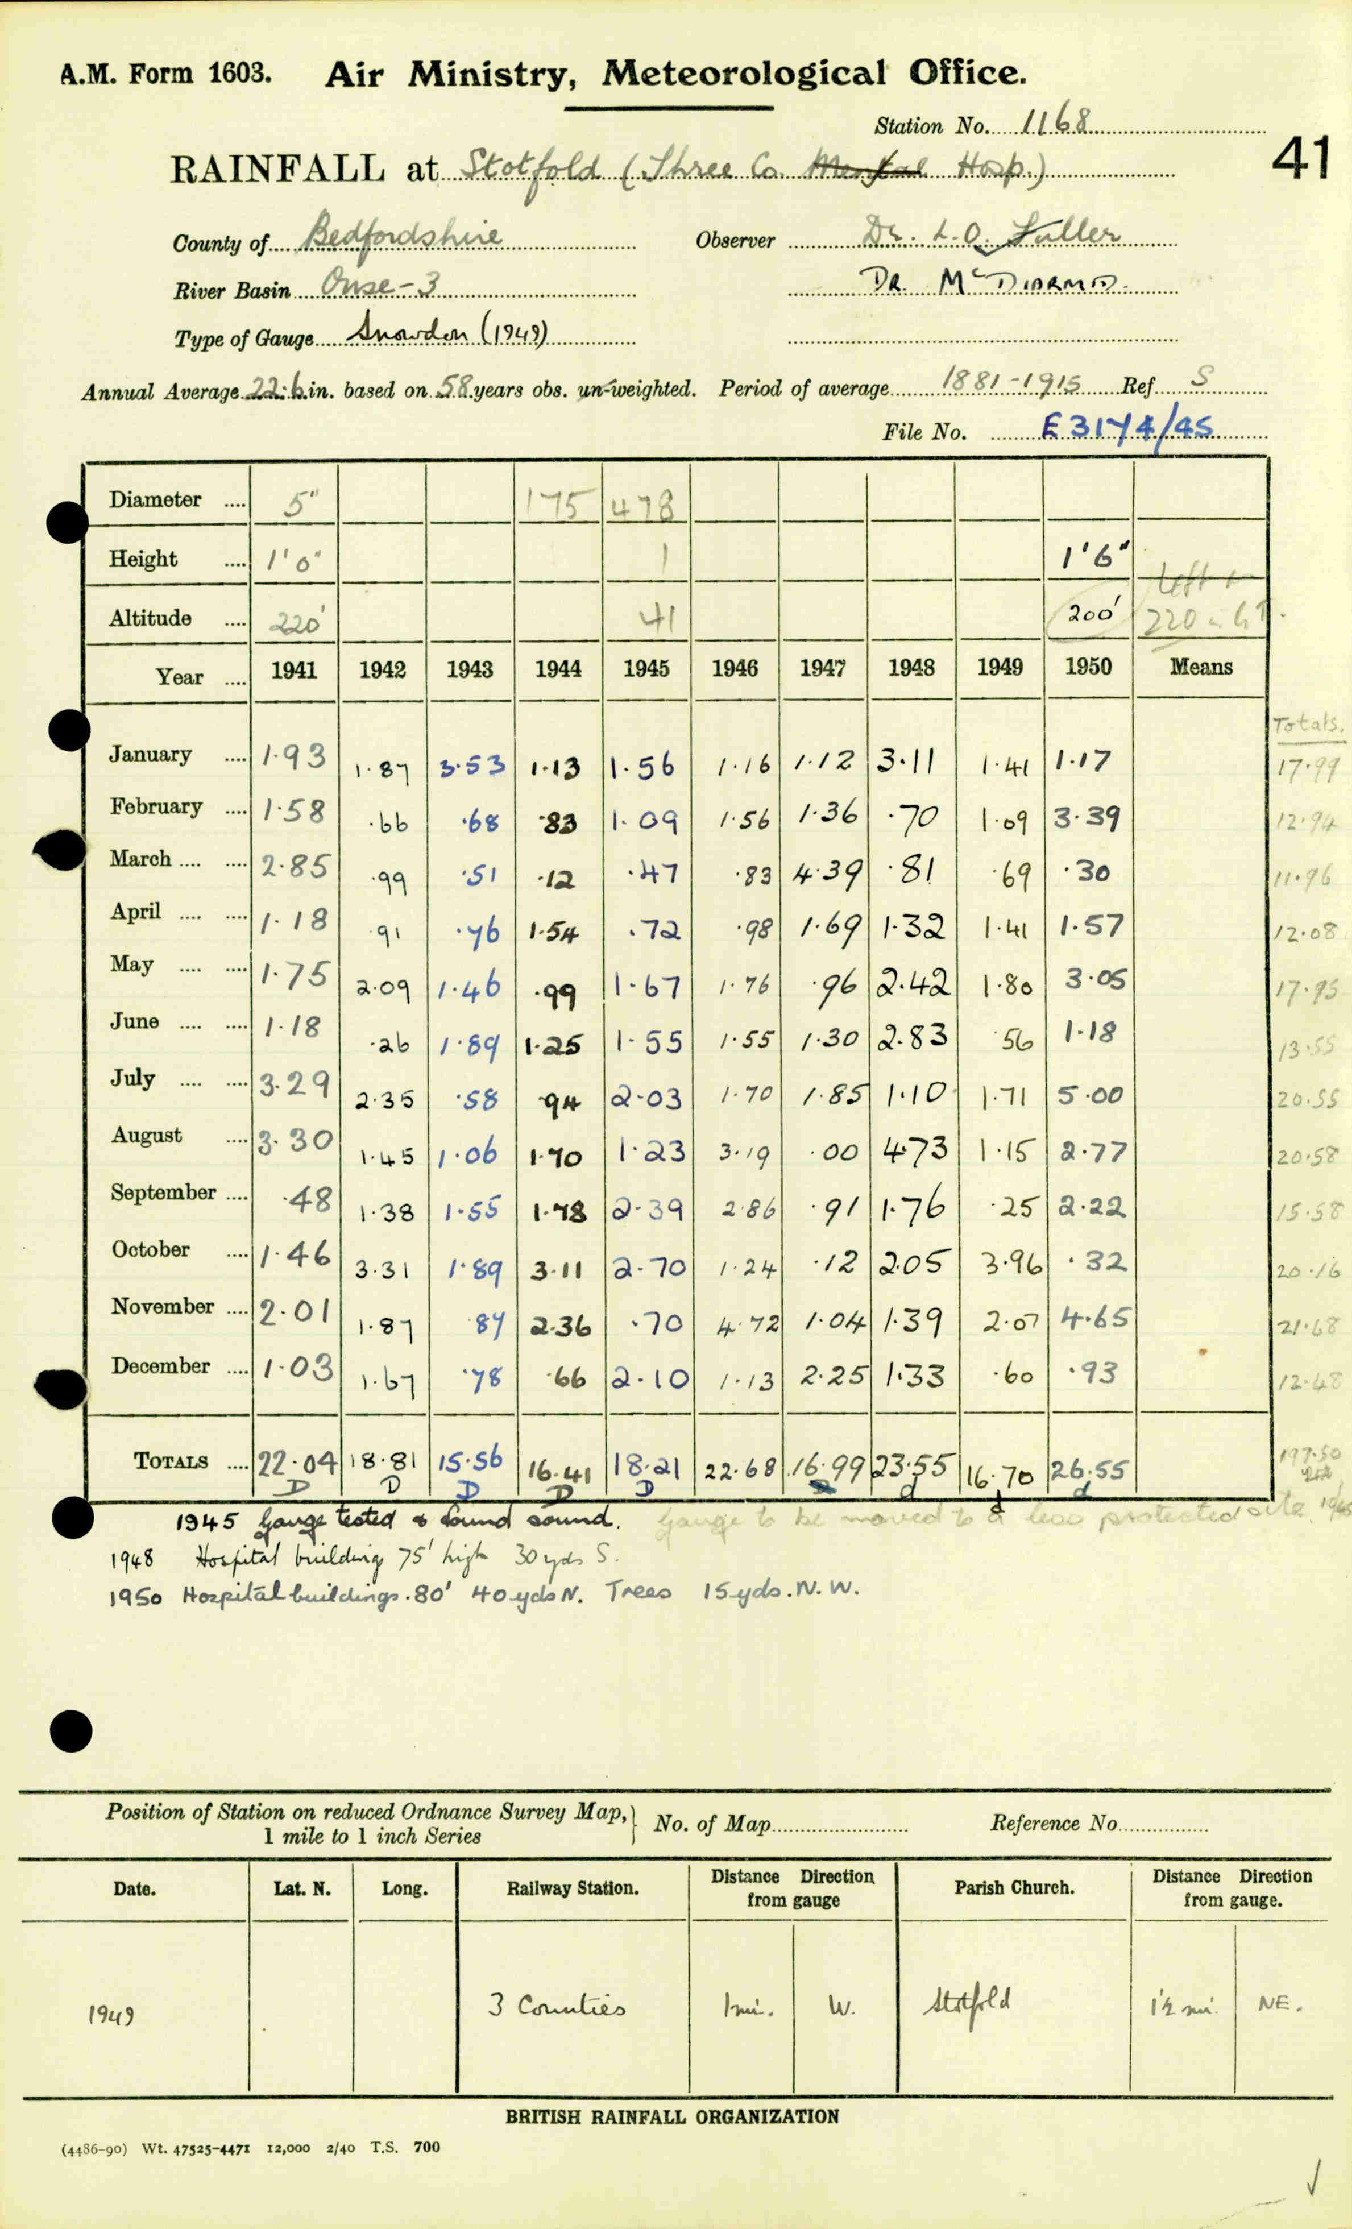 A.M. Form 1603. Air Ministry, Meteorological Office.
Station No. 1168
41
RAINFALL at Stotfold (Three Co. Mental Hosp.)
County of Bedfordshire Observer Dr. L.O. Fuller
River Basin Ouse-3 DR. McDIARMID.
Type of Gauge Snowdon (1949)
Annual Average 22.6 in. based on 58 years obs. un-weighted. Period of average 1881-1915 Ref S
File No. E3174/45
Diameter .... 5" 175 478
Height .... 1'0" 1 1'6"
Altitude .... 220' 41 200' 220
Year .... 1941 1942 1943 1944 1945 1946 1947 1948 1949 1950 Means
Totals.
January .... 1.93 1.87 3.53 1.13 1.56 1.16 1.12 3.11 1.41 1.17 17.99
February .... 1.58 .66 .68 .83 1.09 1.56 1.36 .70 1.09 3.39 12.94
March .... .... 2.85 .99 .51 .12 .47 .83 4.39 .81 .69 .30 11.96
April .... .... 1.18 .91 .76 1.54 .72 .98 1.69 1.32 1.41 1.57 12.08
May .... .... 1.75 2.09 1.46 .99 1.67 1.76 .96 2.42 1.80 3.05 17.95
June .... .... 1.18 .26 1.89 1.25 1.55 1.55 1.30 2.83 .56 1.18 13.55
July .... .... 3.29 2.35 .58 .94 2.03 1.70 1.85 1.10 1.71 5.00 20.55
August .... 3.30 1.45 1.06 1.70 1.23 3.19 .00 4.73 1.15 2.77 20.58
September .... .48 1.38 1.55 1.78 2.39 2.86 .91 1.76 .25 2.22 15.58
October .... 1.46 3.31 1.89 3.11 2.70 1.24 .12 2.05 3.96 .32 20.16
November .... 2.01 1.87 .87 2.36 .70 4.72 1.04 1.39 2.07 4.65 21.68
December .... 1.03 1.67 .78 .66 2.10 1.13 2.25 1.33 .60 .93 12.48
TOTALS .... 22.04 18.81 15.56 16.41 18.21 22.68 16.99 23.55 16.70 26.55 197.50
D D D D D d d d
1945 Gauge tested & found sound. Gauge to be moved to a less protected site.
1948 Hospital building 75' high 30 yds S.
1950 Hospital buildings. 80' 40 yds N. Trees 15 yds. N.W.
Position of Station on reduced Ordnance Survey Map, } No. of Map Reference No.
1 mile to 1 inch Series
Date. Lat. N. Long. Railway Station. Distance Direction from gauge Parish Church. Distance Direction from gauge.
1949 3 Counties 1 mi. W. Stotfold 1½ mi. NE.
BRITISH RAINFALL ORGANIZATION
(4486-90) Wt. 47525-4471 12,000 2/40 T.S. 700